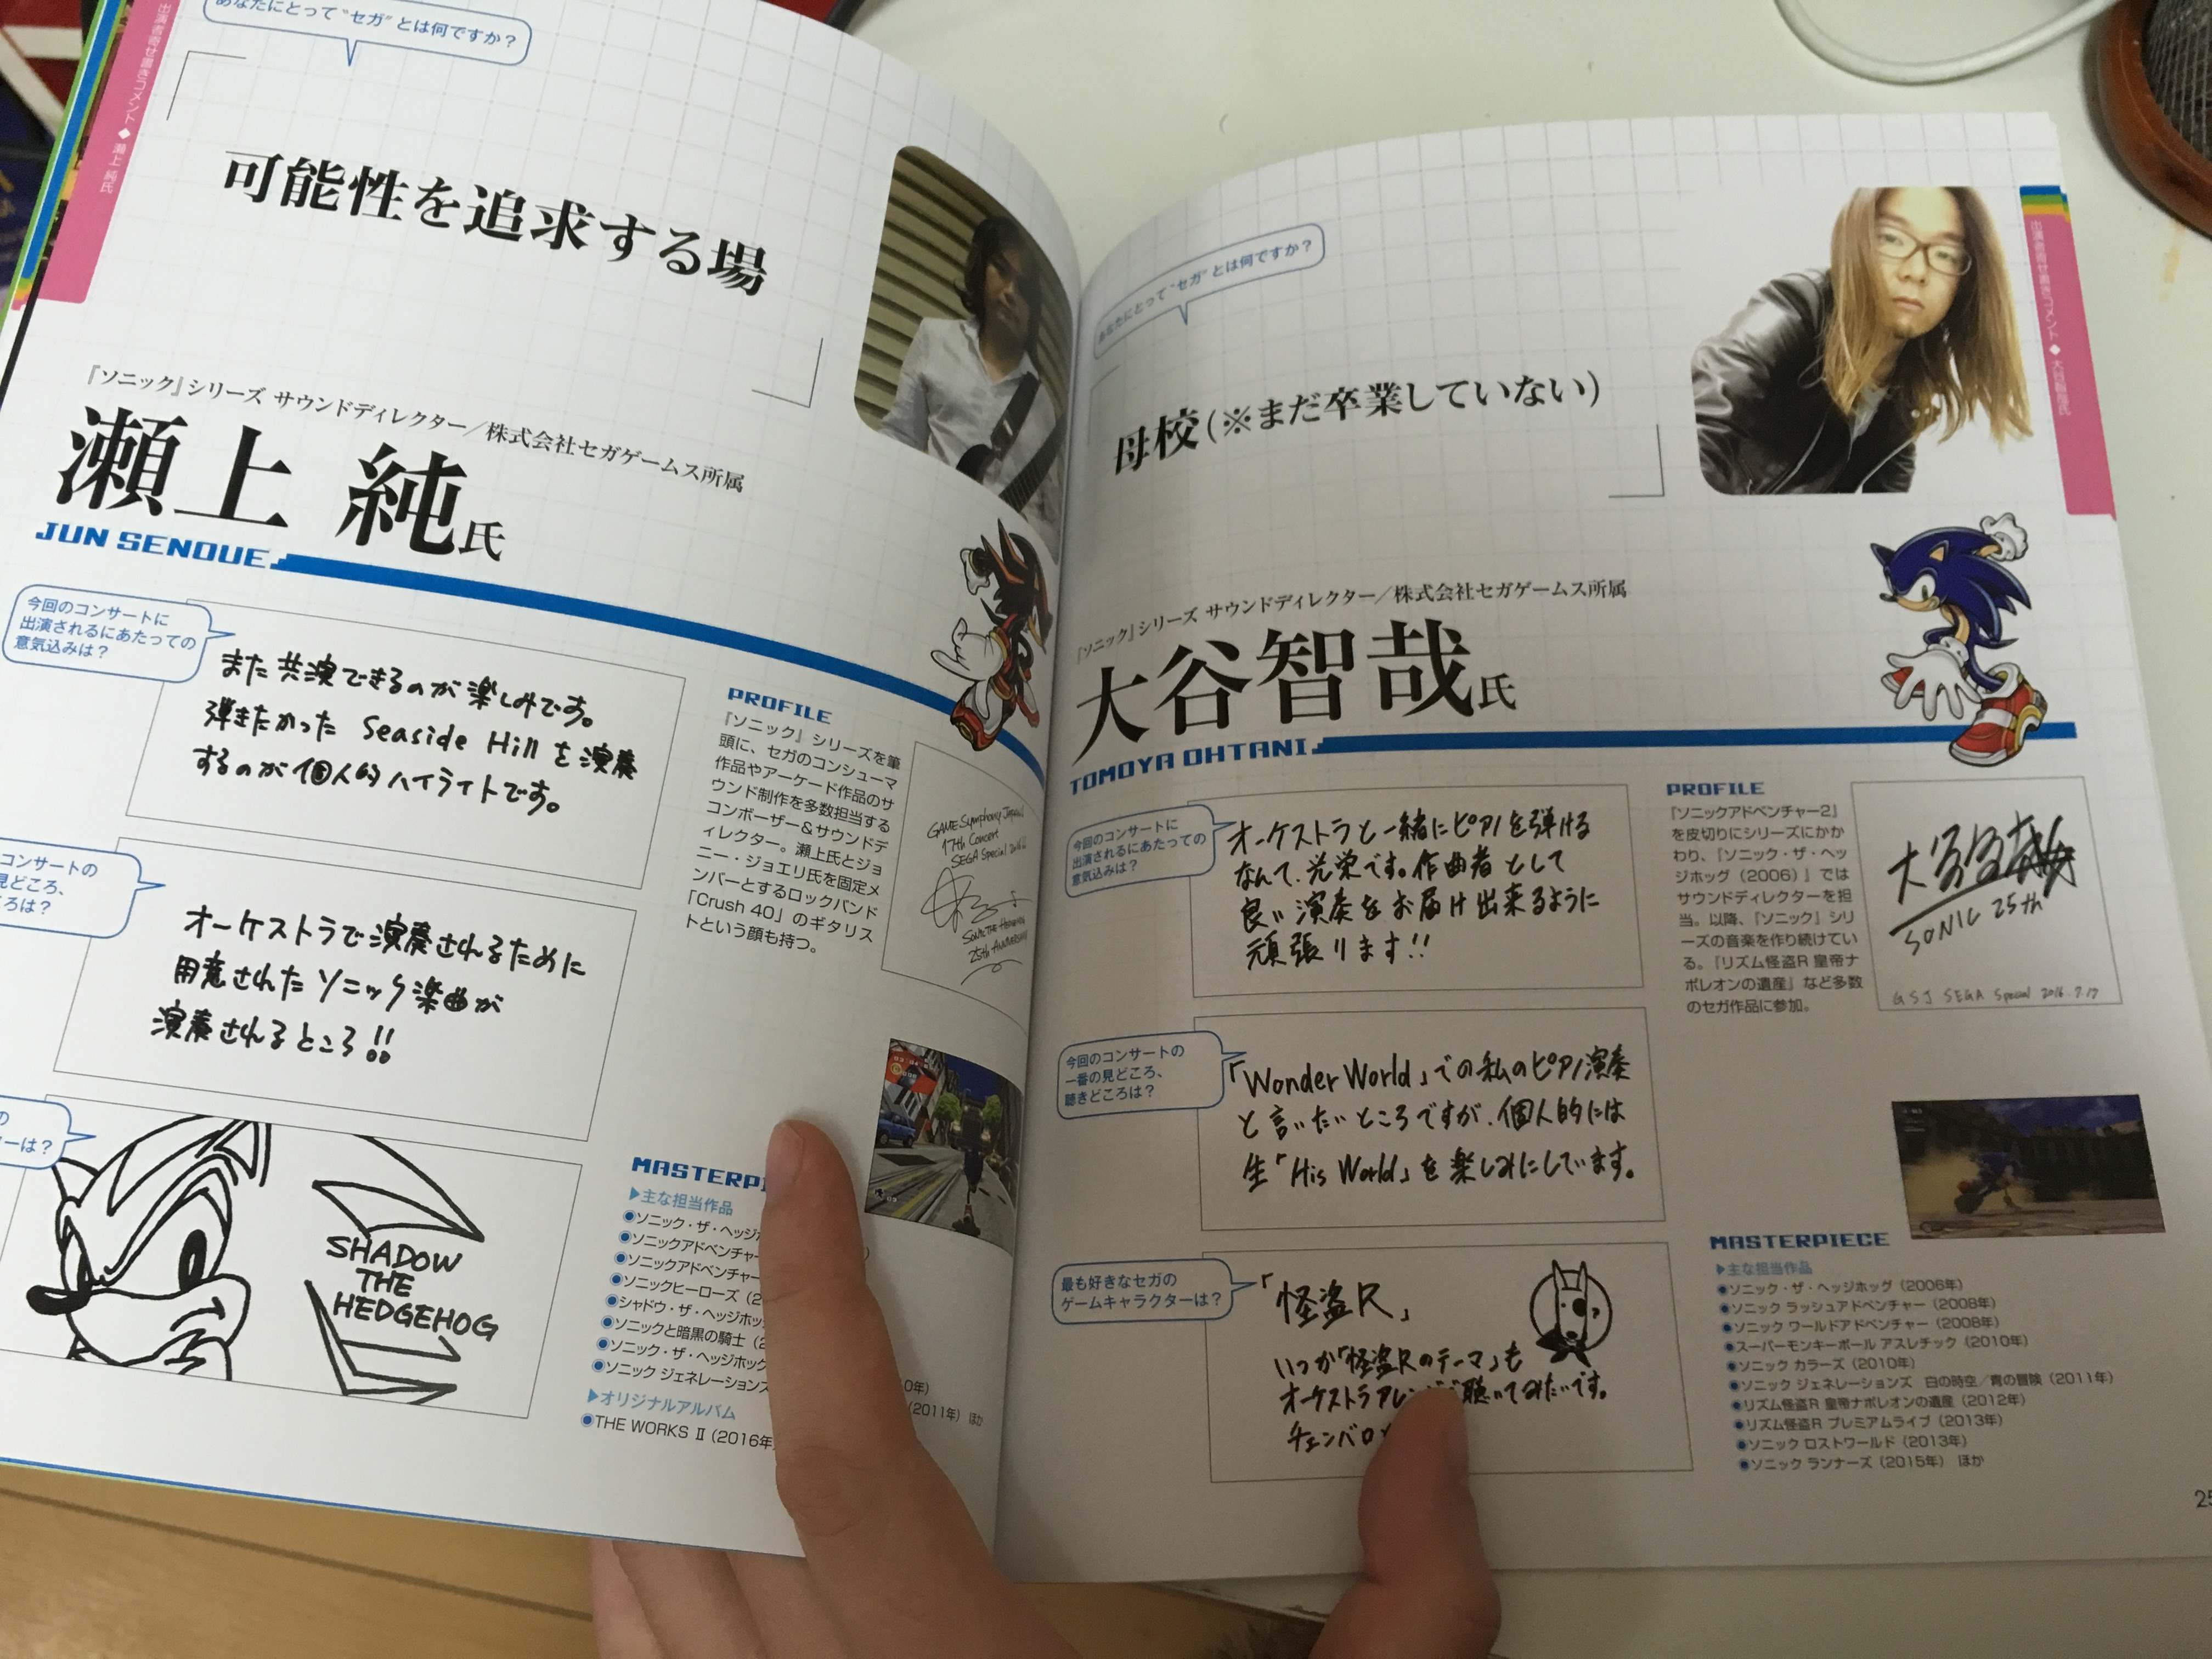 あなたにとって"セガ"とは何ですか?
出演者寄せ書きコメント◆瀬上 純氏
可能性を追求する場
『ソニック』シリーズ サウンドディレクター/株式会社セガゲームス所属
瀬上 純氏
JUN SENOUE
今回のコンサートに
出演されるにあたっての
意気込みは?
また共演できるのが楽しみです。
弾きたかった Seaside Hill を演奏
するのが個人的ハイライトです。
コンサートの
見どころ、
ろは?
オーケストラで演奏されるために
用意されたソニック楽曲が
演奏されるところ!!
の
ーは?
SHADOW
THE
HEDGEHOG
PROFILE
『ソニック』シリーズを筆
頭に、セガのコンシューマ
作品やアーケード作品のサ
ウンド制作を多数担当する
コンポーザー&サウンドデ
ィレクター。瀬上氏とジョ
ニー・ジョエリ氏を固定メ
ンバーとするロックバンド
「Crush 40」のギタリス
トという顔も持つ。
GAME Symphony Japan
17th Concert
SEGA Special 2016
SONIC THE HEDGEHOG
25th ANNIVERSARY
MASTERPI
▶主な担当作品
●ソニック・ザ・ヘッジホ
●ソニックアドベンチャー
●ソニックアドベンチャー
●ソニックヒーローズ(2
●シャドウ・ザ・ヘッジホッ
●ソニックと暗黒の騎士(2
●ソニック・ザ・ヘッジホック
0年)
●ソニック ジェネレーションズ
(2011年) ほか
▶オリジナルアルバム
●THE WORKS Ⅱ(2016年
あなたにとって"セガ"とは何ですか?
出演者寄せ書きコメント◆大谷智哉氏
母校(※まだ卒業していない)
『ソニック』シリーズ サウンドディレクター/株式会社セガゲームス所属
大谷智哉氏
TOMOYA OHTANI
今回のコンサートに
出演されるにあたっての
意気込みは?
オーケストラと一緒にピアノを弾ける
なんて、光栄です。作曲者として
良い演奏をお届け出来るように
頑張ります!!
今回のコンサートの
一番の見どころ、
聴きどころは?
「Wonder World」での私のピアノ演奏
と言いたいところですが、個人的には
生「His World」を楽しみにしています。
最も好きなセガの
ゲームキャラクターは?
「怪盗R」
いつか「怪盗Rのテーマ」も
オーケストラアレン 聴いてみたいです。
チェンバロ
PROFILE
『ソニックアドベンチャー2』
を皮切りにシリーズにかか
わり、『ソニック・ザ・ヘッ
ジホッグ(2006)』では
サウンドディレクターを担
当。以降、『ソニック』シリ
ーズの音楽を作り続けてい
る。『リズム怪盗R 皇帝ナ
ポレオンの遺産』など多数
のセガ作品に参加。
大谷智哉
SONIC 25th
GSJ SEGA Special 2016.7.17
MASTERPIECE
▶主な担当作品
●ソニック・ザ・ヘッジホッグ(2006年)
●ソニック ラッシュアドベンチャー(2008年)
●ソニック ワールドアドベンチャー(2008年)
●スーパーモンキーボール アスレチック(2010年)
●ソニック カラーズ(2010年)
●ソニック ジェネレーションズ 白の時空/青の冒険(2011年)
●リズム怪盗R 皇帝ナポレオンの遺産(2012年)
●リズム怪盗R プレミアムライブ(2013年)
●ソニック ロストワールド(2013年)
●ソニック ランナーズ(2015年) ほか
25